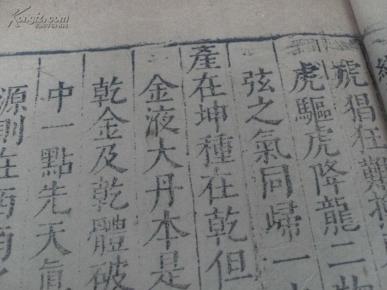 猖狂難
虎驅虎降龍二物
弦之氣同歸一
產在坤種在乾但
金液大丹本是
乾金及乾體破
中一點先天氣
源則在西南